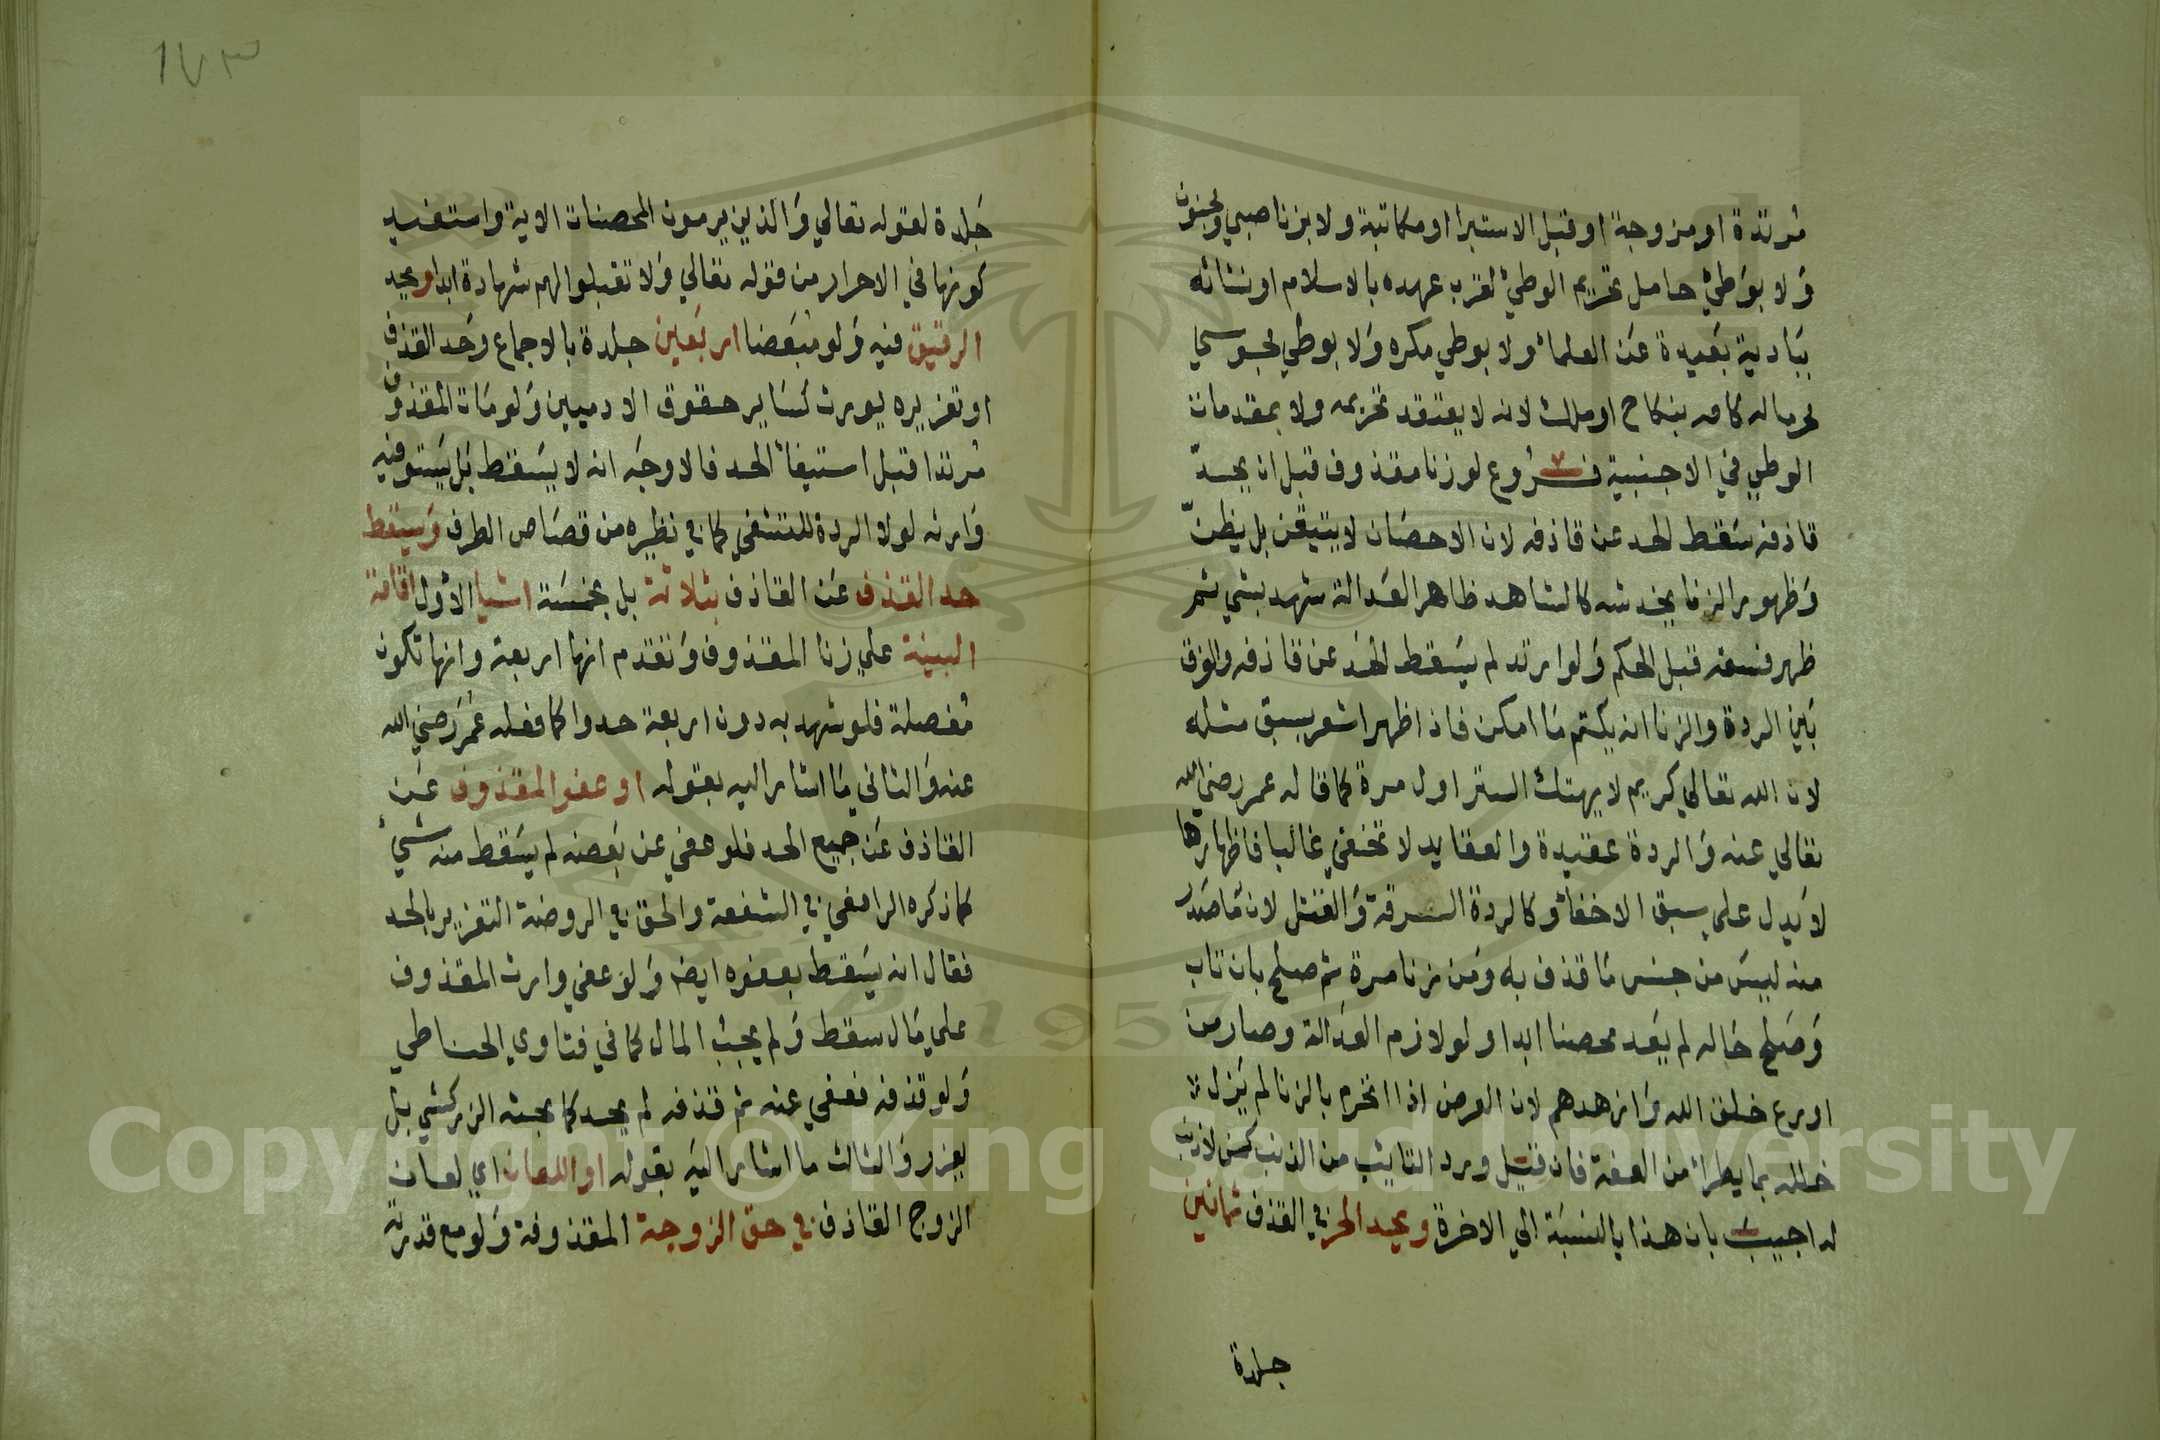 مرتدة او مزوجة او قبل الاستبرا او مكاتبة ولا بزنا صبي ومجنون
ولا بوطئ حامل تحريم الوطئ لقرب عهده بالاسلام او نشاته
ببادية بعيدة عن العلماء ولا بوطي مكره ولا بوطي مجوسي
محرما له كامه بنكاح او ملك لانه لا يعتقد تحريمه ولا بمقدمات
الوطي في الاجنبية فروع لو زنا مقذوف قبل ان يحد
قاذفه سقط الحد عن قاذفه لان الاحصان لا يتيقن بل يظن
وظهور الزنا يخدشه كالشاهد ظاهر العدالة شهد بشي ثم
ظهر فسقه قبل الحكم ولو ارتد لم يسقط الحد عن قاذفه والفرق
بين الردة والزنا انه يكتم ما امكن فاذا ظهر اشعر بسبق مثله
لان الله تعالي كريم لا يهتك الستر اول مرة كما قاله عمر رضي الله
تعالي عنه والردة عقيدة والعقايد لا تخفي غالبا فاظهارها
لا يدل علي سبق الاخفاء وكالردة السرقة والقتل لان ما صدر
منه ليس من جنس ما قذف به ومن زنا مرة ثم صلح بان تاب
وصلح حاله لم يعد محصنا ابدا ولو لازم العدالة وصار من
اورع خلق الله وازهدهم لان العرض اذا انخرم بالزنا لم يزل
خلله بما يطرا من العفة فان قيل ورد التايب من الذنب كمن لا ذنب
له اجيب بان هذا بالنسبة الي الاخرة ويحد الحر في القذف ثمانين
جلدة
١٧٣
جلدة لقوله تعالي والذين يرمون المحصنات الاية واستفيد
كونها في الاحرار من قوله تعالي ولا تقبلوا لهم شهادة ابدا ويحد
الرقيق فيه ولو مبعضا اربعين جلدة بالاجماع وحد القذف
او تعزيره يورث كساير حقوق الادميين ولو مات المقذوف
مرتدا قبل استيفاء الحد فالاوجه انه لا يسقط بل يستوفيه
وارثه لولا الردة للتشفي كما في نظيره من قصاص الطرف ويسقط
حد القذف عن القاذف بثلاثة بل بخمسة اشيا الاول اقامة
البينة علي زنا المقذوف وتقدم انها اربعة وانها تكون
مفصلة فلو شهد به دون اربعة حدوا كما فعله عمر رضي الله
عنه والثاني ما اشار اليه بقوله او عفو المقذوف عن
القاذف عن جميع الحد فلو عفي عن بعضه لم يسقط منه شيء
كما ذكره الرافعي في الشفعة والحق في الروضة التعزير بالحد
فقال انه يسقط بعفوه ايضا ولو عفي وارث المقذوف
علي مال سقط ولم يجب المال كما في فتاوي الحناطي
ولو قذفه فعفي عنه ثم قذفه لم يحد كما بحثه الزركشي بل
يعزر والثالث ما اشار اليه بقوله او اللعان اي لعان
الزوج القاذف في حق الزوجة المقذوفة ولو مع قدرته
Copyright © King Saud University
1957